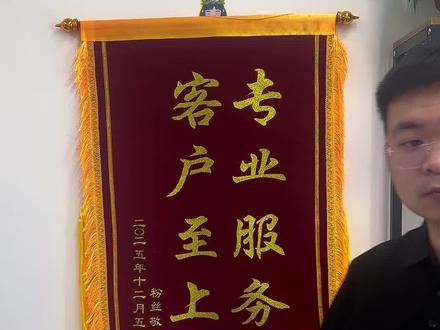 专业服务
客户至上
粉丝敬
二〇二五年十二月五